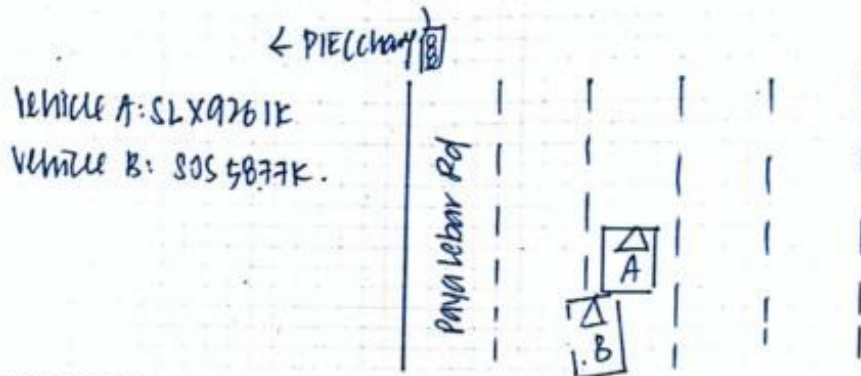 ← PIE(Changi)
Vehicle A: SLX9261K
Vehicle B: SDS 5877K.
Paya Lebar Rd
A
B